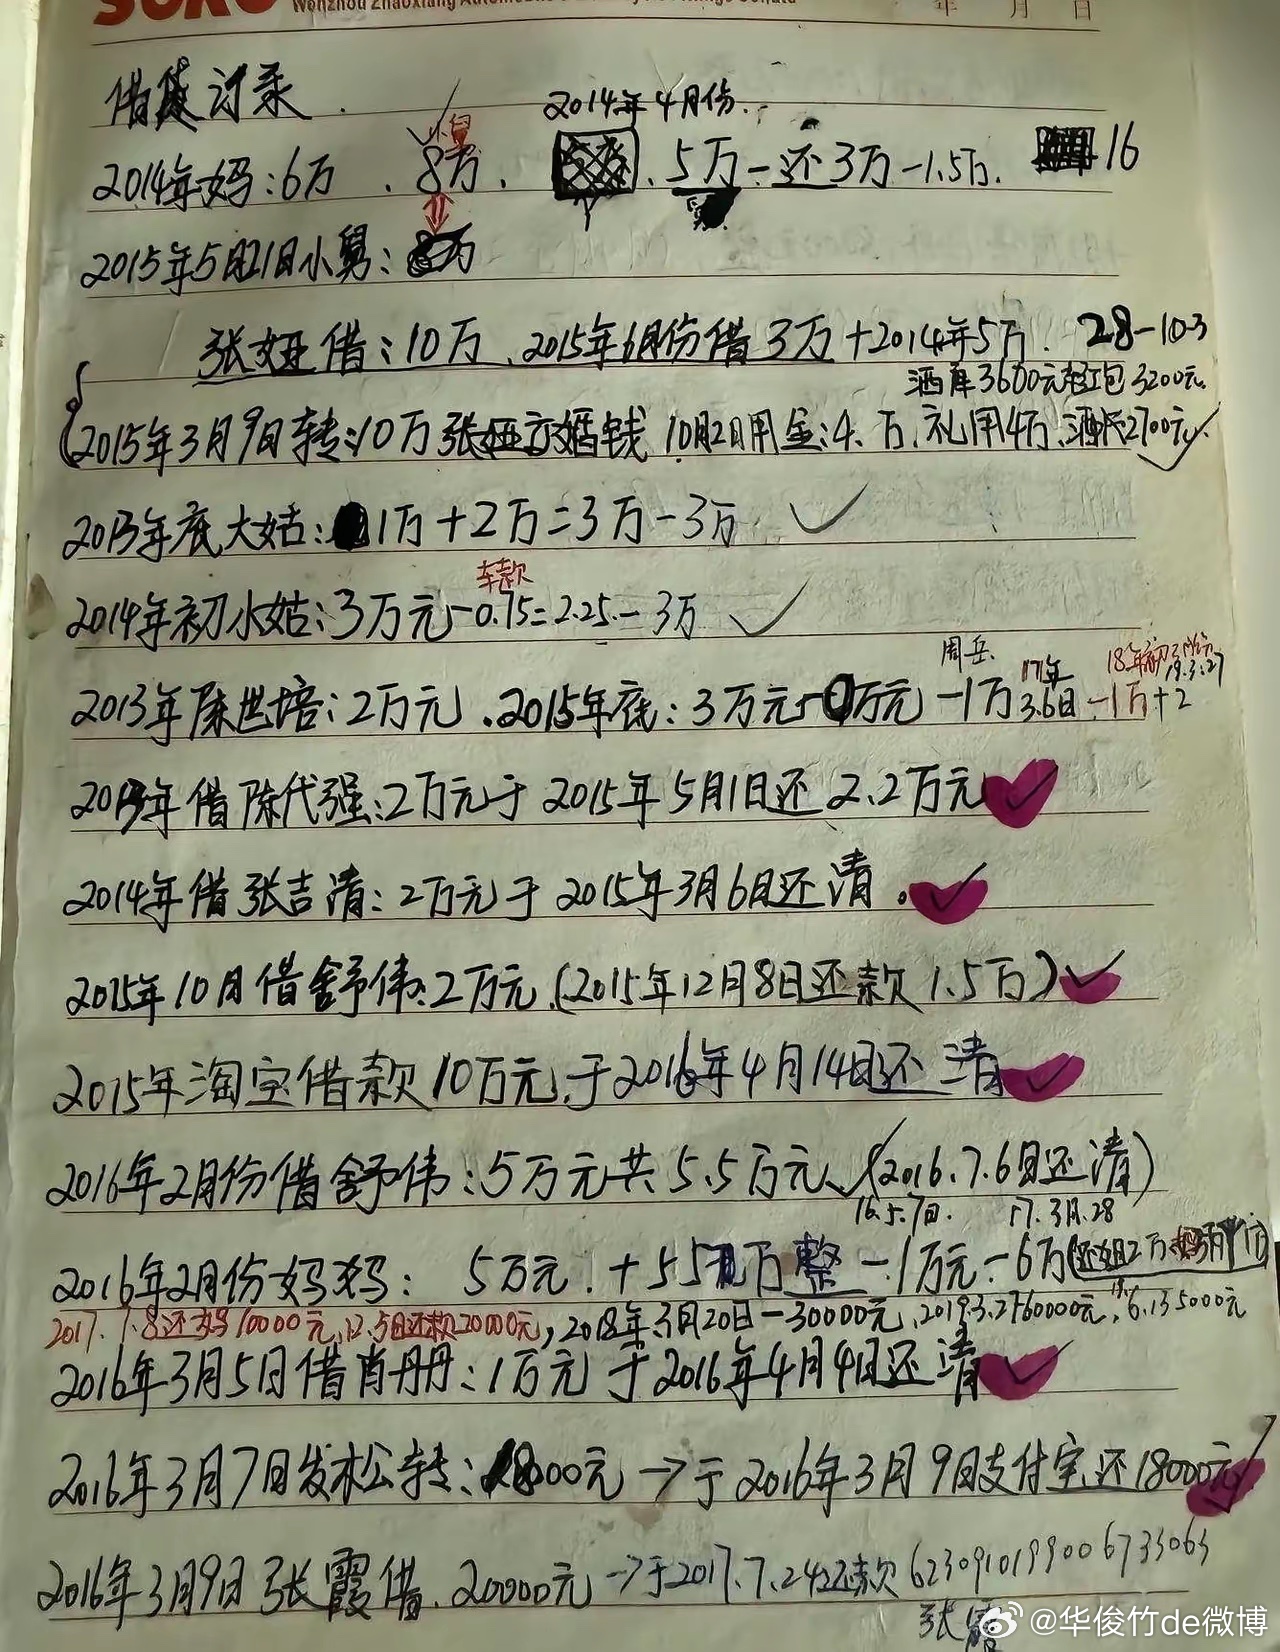 年 月 日
借贷记录.
2014年4月份.
小舅
2014年妈:6万 . 8万. . 5万-还3万-1.5万. 16
2015年5月21日小舅:
张娅借:10万、2015年6月份借3万+2014年5万. 28-10-3
酒席3600元红包3200元
2015年3月9日转:10万张娅交婚钱 10月2日用金:4.万.礼用4万.酒席2700元
2013年底大姑: 1万+2万=3万-3万
车款
2014年初小姑:3万元-0.75=2.25-3万
周岳 17年 18年初 19.3.27
2013年陈世培:2万元.2015年底:3万元 万元-1万3.6日-1万+2
2013年借陈代强:2万元于2015年5月1日还2.2万元
2014年借张吉清:2万元于2015年3月6日还清。
2015年10月借舒伟:2万元(2015年12月8日还款1.5万)
2015年淘宝借款10万元于2016年4月14日还清
2016年2月份借舒伟:5万元共5.5万元(2016.7.6日还清)
16.5.7日. 17.3月.28
2016年2月份妈妈: 5万元.+5.5 万整-1万元-6万(还姐2万
2017.7.8还妈10000元,12.5日还款20000元,2018年3月20日-30000元,2019.3.27 60000元,6.13 5000元
2016年3月5日借肖丹:1万元于2016年4月4日还清
2016年3月7日发松转: 18000元→于2016年3月9日支付宝还18000元
2016年3月9日张霞借.20000元→于2017.7.24还款6230910199006733063
张霞
@华俊竹de微博